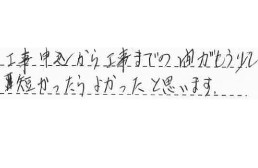 工事申込から工事までの間がもう少し
短かったらよかったと思います。